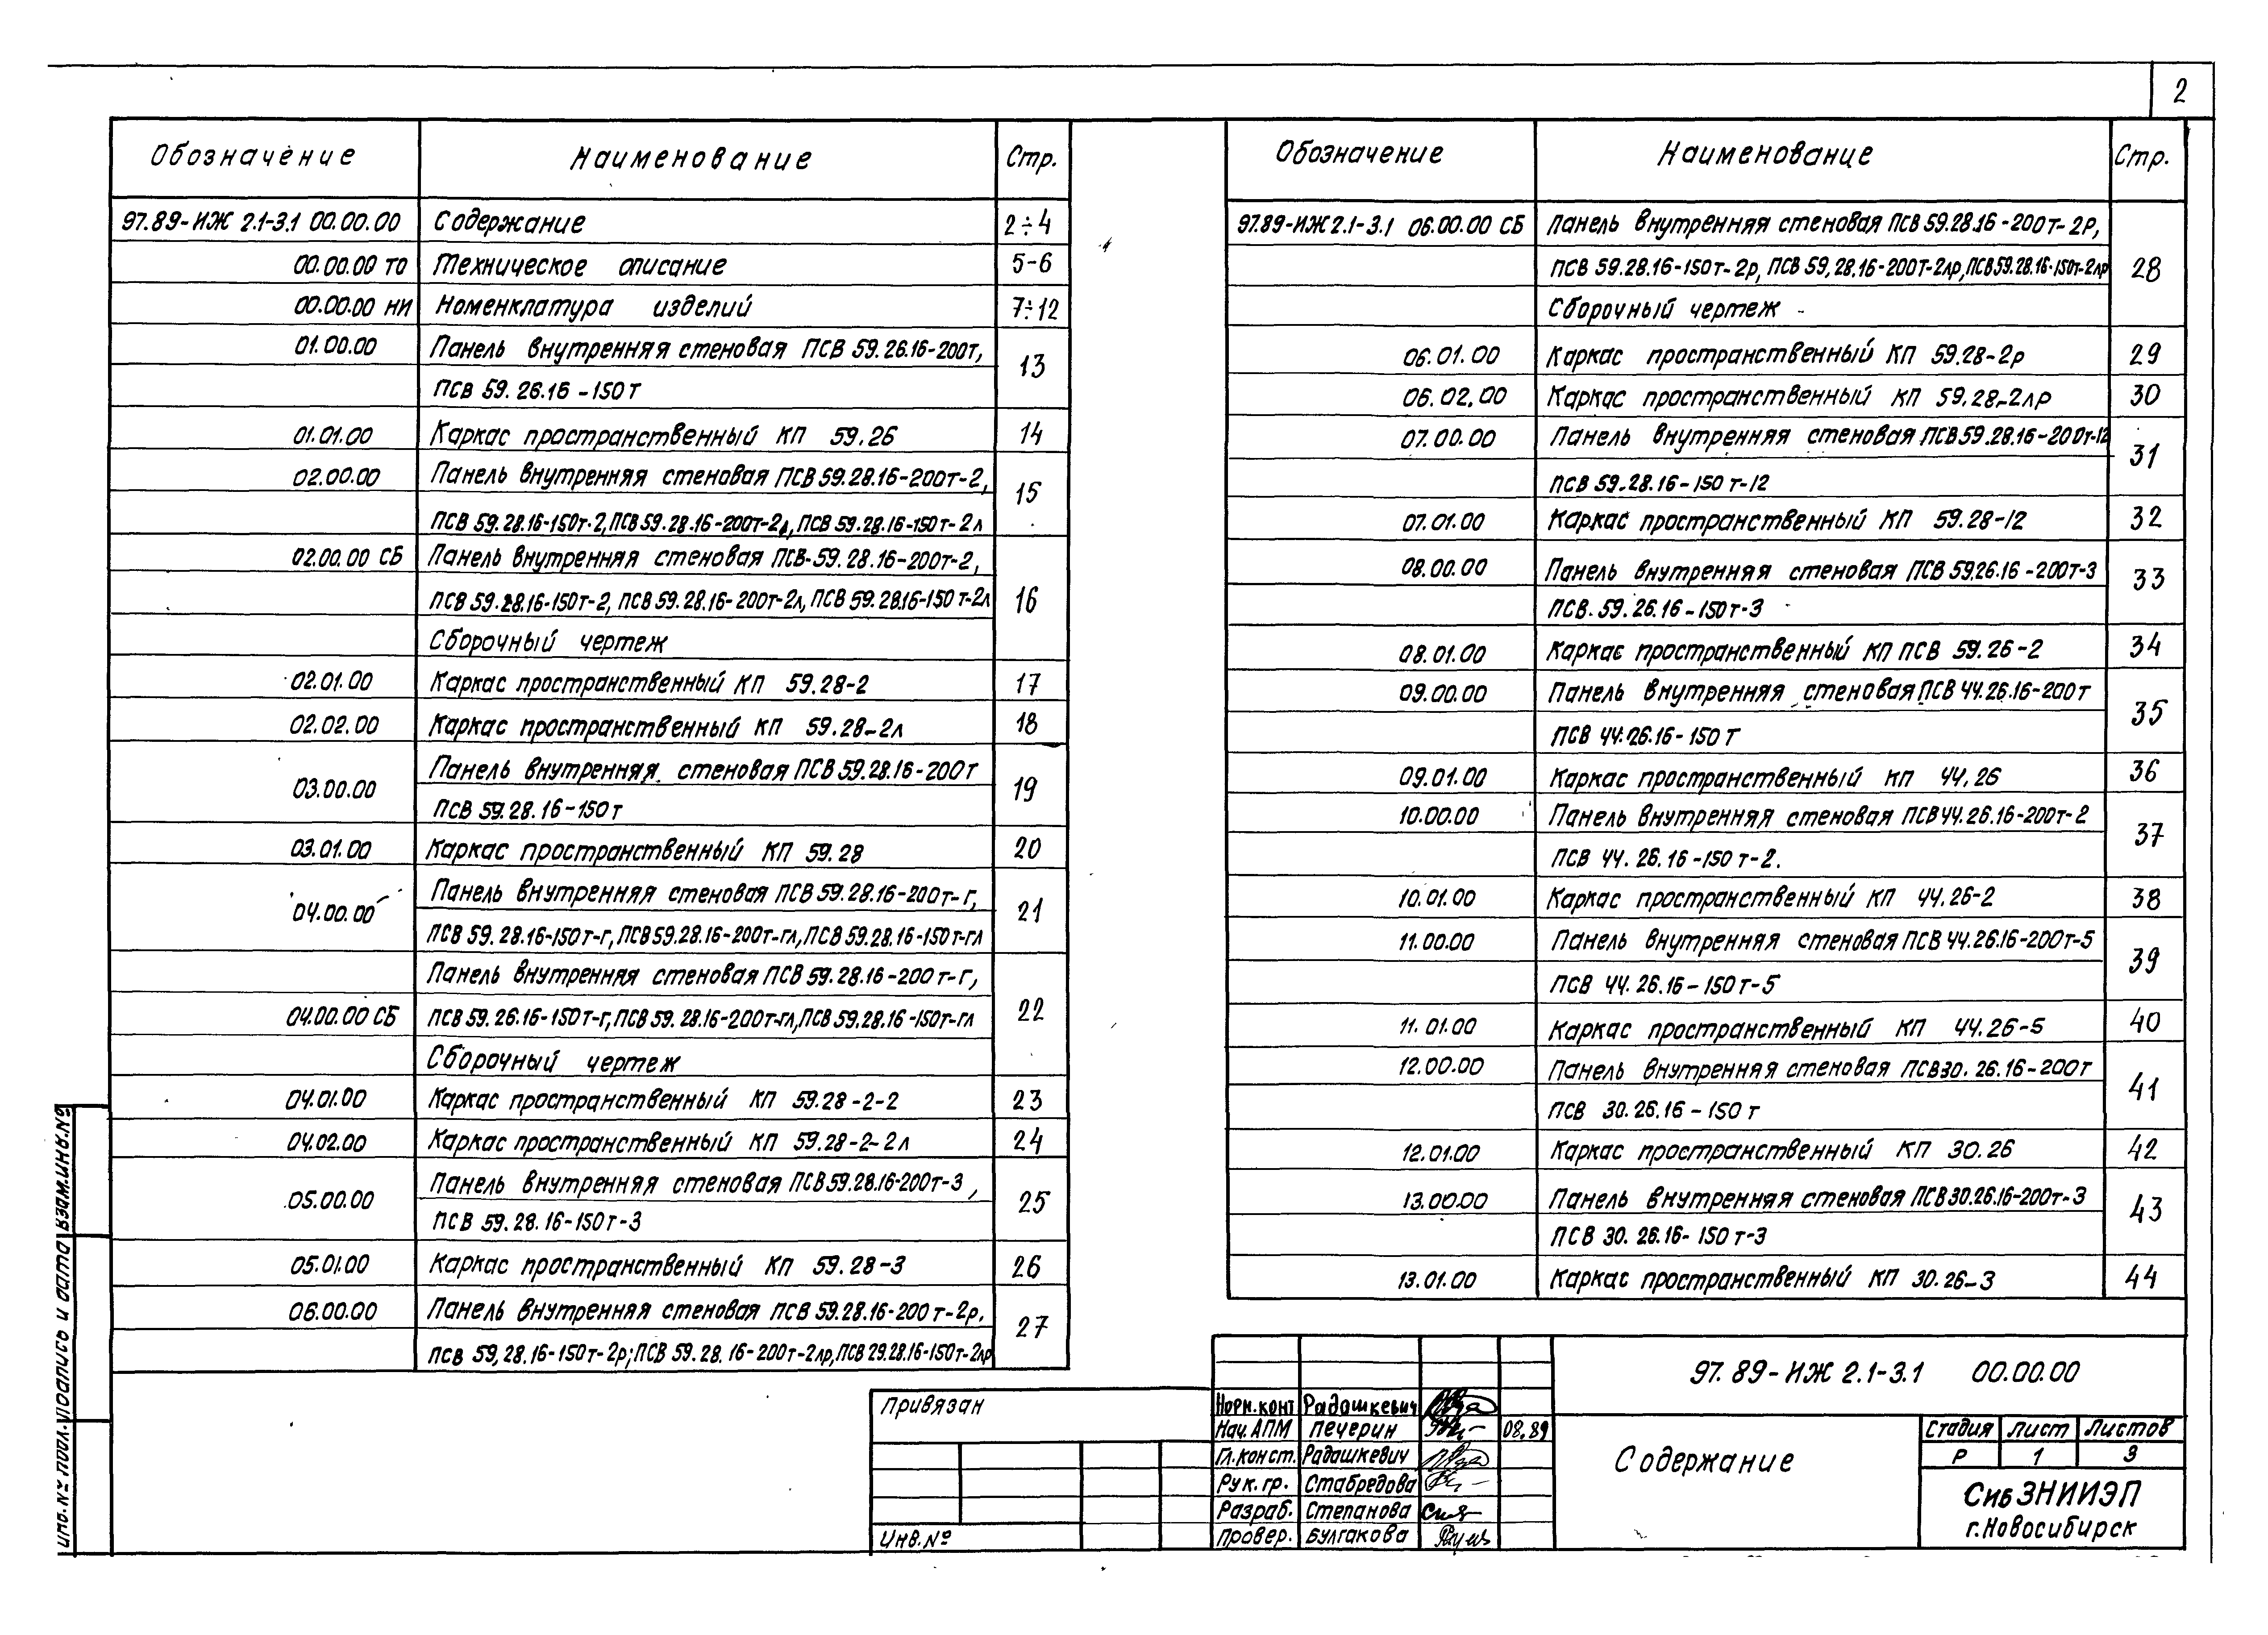 2
Обозначение Наименование Стр.
97.89-ИЖ 2.1-3.1 00.00.00 Содержание 2÷4
00.00.00 ТО Техническое описание 5-6
00.00.00 НИ Номенклатура изделий 7÷12
01.00.00 Панель внутренняя стеновая ПСВ 59.26.16-200т,
ПСВ 59.26.16-150т 13
01.01.00 Каркас пространственный КП 59.26 14
02.00.00 Панель внутренняя стеновая ПСВ 59.28.16-200т-2,
ПСВ 59.28.16-150т-2, ПСВ 59.28.16-200т-2л, ПСВ 59.28.16-150т-2л 15
02.00.00 СБ Панель внутренняя стеновая ПСВ-59.28.16-200т-2,
ПСВ 59.28.16-150т-2, ПСВ 59.28.16-200т-2л, ПСВ 59.28.16-150т-2л 16
Сборочный чертеж
02.01.00 Каркас пространственный КП 59.28-2 17
02.02.00 Каркас пространственный КП 59.28-2л 18
03.00.00 Панель внутренняя стеновая ПСВ 59.28.16-200т
ПСВ 59.28.16-150т 19
03.01.00 Каркас пространственный КП 59.28 20
04.00.00 Панель внутренняя стеновая ПСВ 59.28.16-200т-г,
ПСВ 59.28.16-150т-г, ПСВ 59.28.16-200т-гл, ПСВ 59.28.16-150т-гл 21
Панель внутренняя стеновая ПСВ 59.28.16-200т-г,
04.00.00 СБ ПСВ 59.26.16-150т-г, ПСВ 59.28.16-200т-гл, ПСВ 59.28.16-150т-гл 22
Сборочный чертеж
04.01.00 Каркас пространственный КП 59.28-2-2 23
04.02.00 Каркас пространственный КП 59.28-2-2л 24
05.00.00 Панель внутренняя стеновая ПСВ 59.28.16-200т-3,
ПСВ 59.28.16-150т-3 25
05.01.00 Каркас пространственный КП 59.28-3 26
06.00.00 Панель внутренняя стеновая ПСВ 59.28.16-200т-2р,
ПСВ 59,28.16-150т-2р; ПСВ 59.28.16-200т-2лр, ПСВ 29.28.16-150т-2лр 27
Обозначение Наименование Стр.
97.89-ИЖ 2.1-3.1 06.00.00 СБ Панель внутренняя стеновая ПСВ 59.28.16-200т-2р,
ПСВ 59.28.16-150т-2р, ПСВ 59,28.16-200т-2лр, ПСВ 59.28.16-150т-2лр 28
Сборочный чертеж
06.01.00 Каркас пространственный КП 59.28-2р 29
06.02.00 Каркас пространственный КП 59.28-2лр 30
07.00.00 Панель внутренняя стеновая ПСВ 59.28.16-200т-12
ПСВ 59.28.16-150т-12 31
07.01.00 Каркас пространственный КП 59.28-12 32
08.00.00 Панель внутренняя стеновая ПСВ 59.26.16-200т-3
ПСВ.59.26.16-150т-3 33
08.01.00 Каркас пространственный КП ПСВ 59.26-2 34
09.00.00 Панель внутренняя стеновая ПСВ 44.26.16-200т
ПСВ 44.26.16-150т 35
09.01.00 Каркас пространственный КП 44.26 36
10.00.00 Панель внутренняя стеновая ПСВ 44.26.16-200т-2
ПСВ 44.26.16-150т-2. 37
10.01.00 Каркас пространственный КП 44.26-2 38
11.00.00 Панель внутренняя стеновая ПСВ 44.26.16-200т-5
ПСВ 44.26.16-150т-5 39
11.01.00 Каркас пространственный КП 44.26-5 40
12.00.00 Панель внутренняя стеновая ПСВ 30.26.16-200т
ПСВ 30.26.16-150т 41
12.01.00 Каркас пространственный КП 30.26 42
13.00.00 Панель внутренняя стеновая ПСВ 30.26.16-200т-3
ПСВ 30.26.16-150т-3 43
13.01.00 Каркас пространственный КП 30.26-3 44
Привязан
Инв.№
Норм.конт Радашкевич
Нач.АПМ Печерин 08.89
Гл.конст. Радашкевич
Рук.гр. Стабредова
Разраб. Степанова
Провер. Булгакова
97.89-ИЖ 2.1-3.1 00.00.00
Содержание
Стадия Лист Листов
Р 1 3
СибЗНИИЭП
г.Новосибирск
Инв.№ подл. Подпись и дата Взам.инв.№